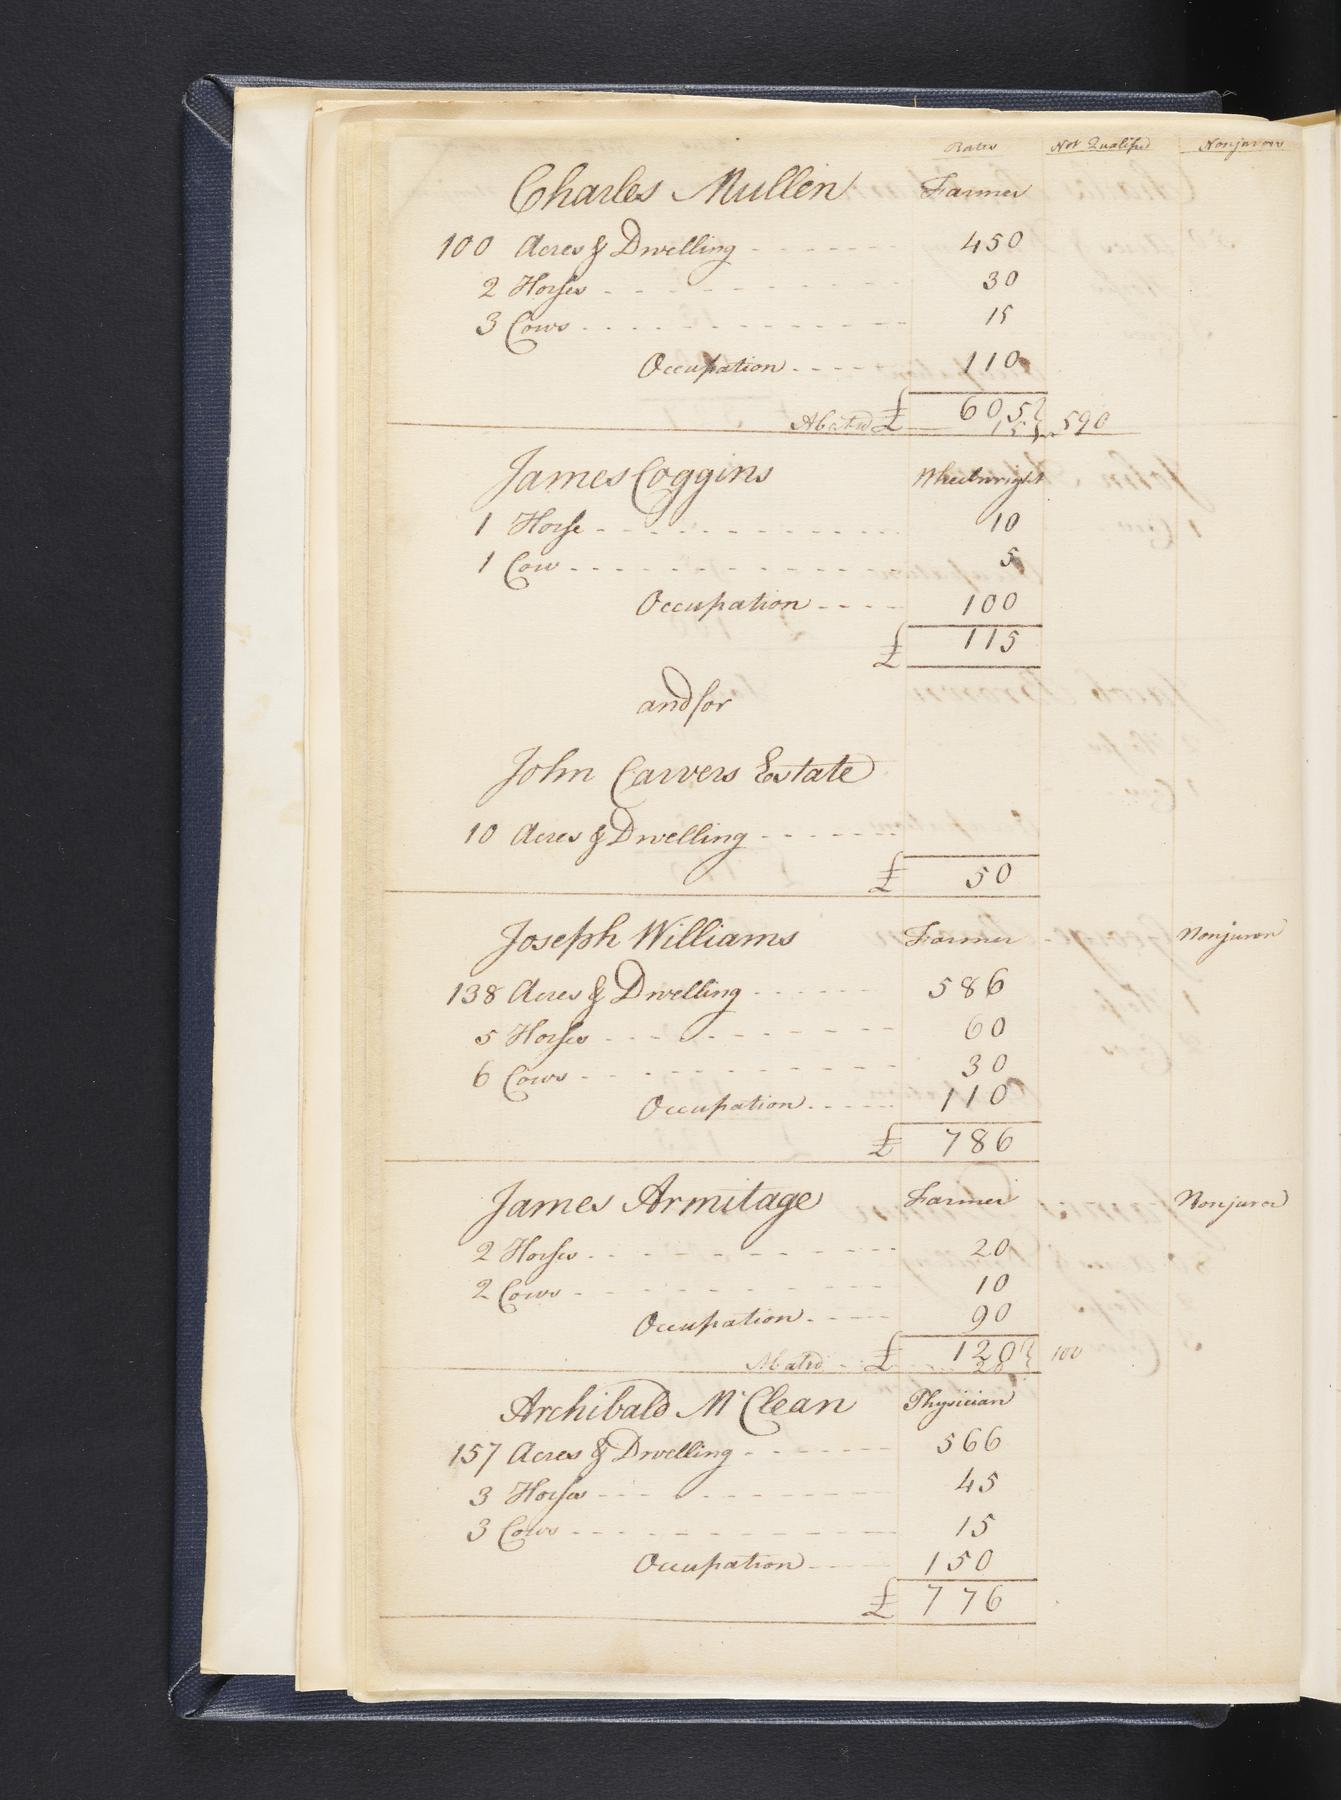 Rates Not Qualified Nonjurors
Charles Mullen Farmer
100 Acres & Dwelling 450
2 Horses 30
3 Cows 15
Occupation 110
£ 605
Abated £ 15 590
James Coggins Wheelwright
1 Horse 10
1 Cow 5
Occupation 100
£ 115
and for
John Carvers Estate
10 Acres & Dwelling
£ 50
Joseph Williams Farmer Nonjuror
138 Acres & Dwelling 586
5 Horses 60
6 Cows 30
Occupation 110
£ 786
James Armitage Farmer Nonjuror
2 Horses 20
2 Cows 10
Occupation 90
£ 120 100
Abated 20
Archibald McClean Physician
157 Acres & Dwelling 566
3 Horses 45
3 Cows 15
Occupation 150
£ 776